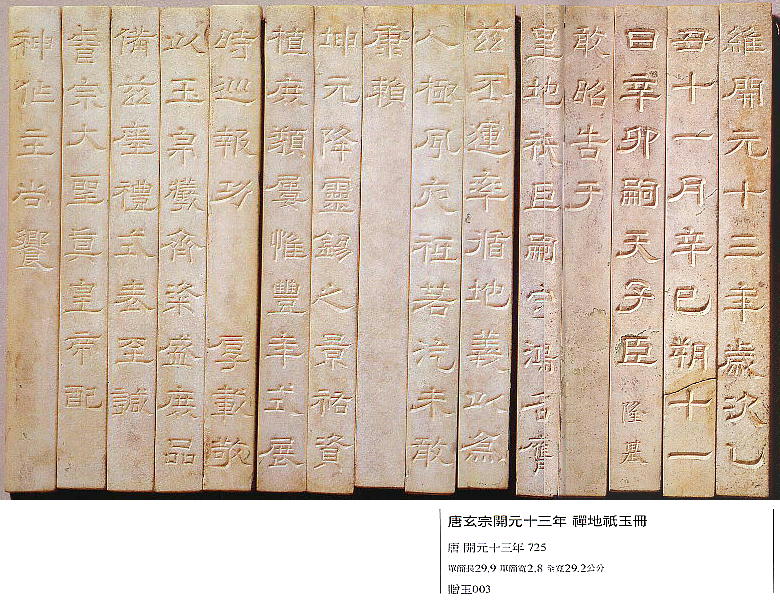 維開元十三年歲次乙
丑十一月辛巳朔十一
日辛卯嗣天子臣隆基
敢昭告于
皇地祇臣嗣守鴻名膺
茲丕運率循地義以為
人極夙夜祗若汔未敢
康賴
坤元降靈錫之景祐資
植庶類屢惟豐年式展
時巡報功 厚載敬
以玉帛犧齊粢盛庶品
備茲瘞禮式表至誠
睿宗大聖真皇帝配
神作主尚饗
唐玄宗開元十三年 禪地祇玉冊
唐 開元十三年 725
單簡長29.9 單簡寬2.8 全寬29.2公分
贈玉003